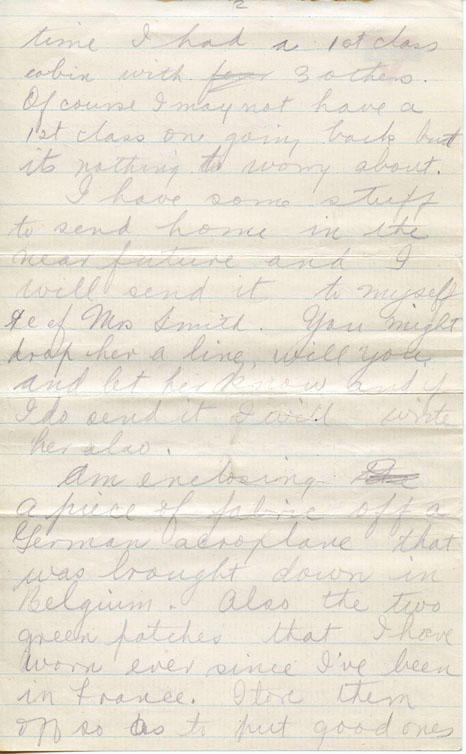 2
time I had a 1st class
cabin with four 3 others.
Of course I may not have a
1st class one going back but
its nothing to worry about.
I have some stuff
to send home in the
near future and I
will send it to myself
℅ of Mrs Smith. You might
drop her a line, will you
and let her know and if
I do send it I will write
her also.
Am enclosing
a piece of fabric off a
German aeroplane that
was brought down in
Belgium. Also the two
green patches that I have
worn ever since I've been
in France. I tore them
off so as to put good ones